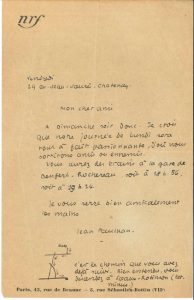 nrf
Vendredi
Mon cher ami
A dimanche soir donc. Je crois
que notre journée de lundi sera
tout à fait passionnante. D'où nous
sortirons amis ou ennemis.
Vous aurez des trains à la gare de
Denfert-Rochereau soit à 18 h. 56,
soit à 19 h. 24.
Je vous serre bien amicalement
les mains
Jean Paulhan.
c'est le chemin que vous avez
déjà suivi. Bien entendu, vous
Robinson
Paris, 43, rue de Beaune — 5, rue Sébastien-Bottin (VIIe)